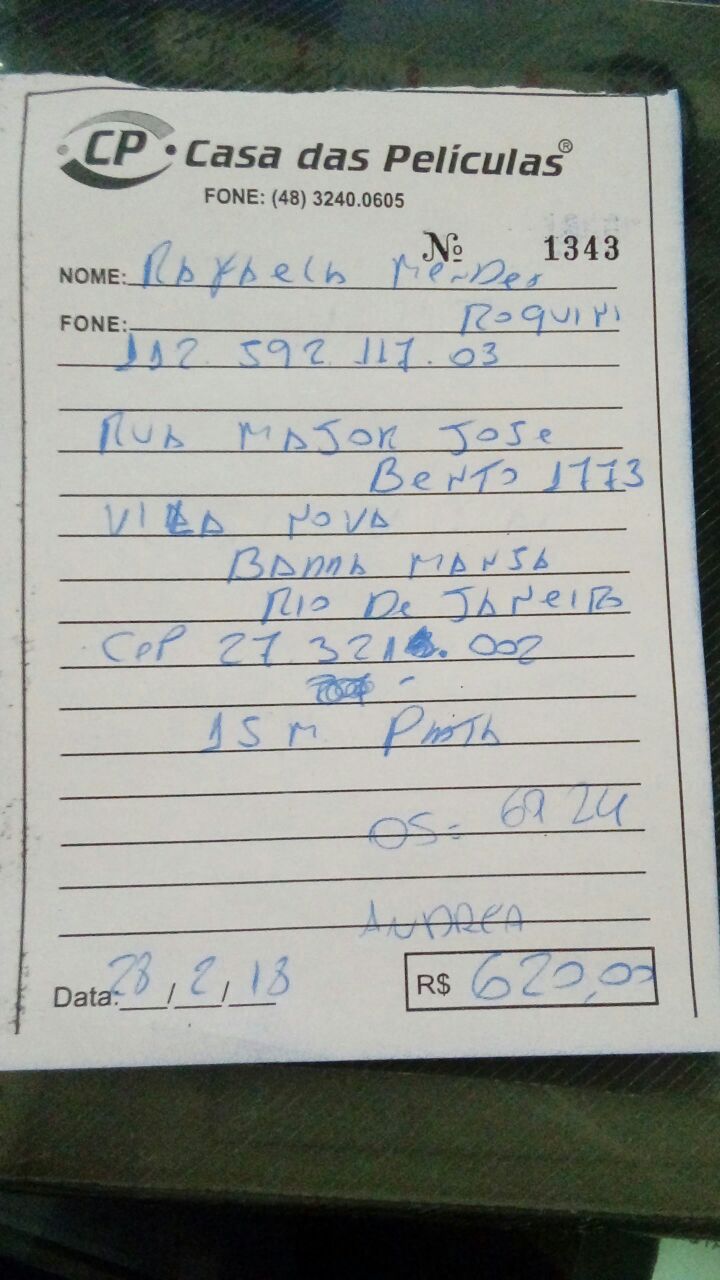 CP Casa das Películas®
FONE: (48) 3240.0605
Nº 1343
NOME: RAFAELA MENDES
FONE: ROQUINI
112. 592. 117. 03
RUA MAJOR JOSE
BENTO 1773
VILA NOVA
BARRA MANSA
RIO DE JANEIRO
CEP 27 321. 002
15 M PRATA
OS= 24
ANDREA
Data: 28 / 2 / 18
R$ 620,00